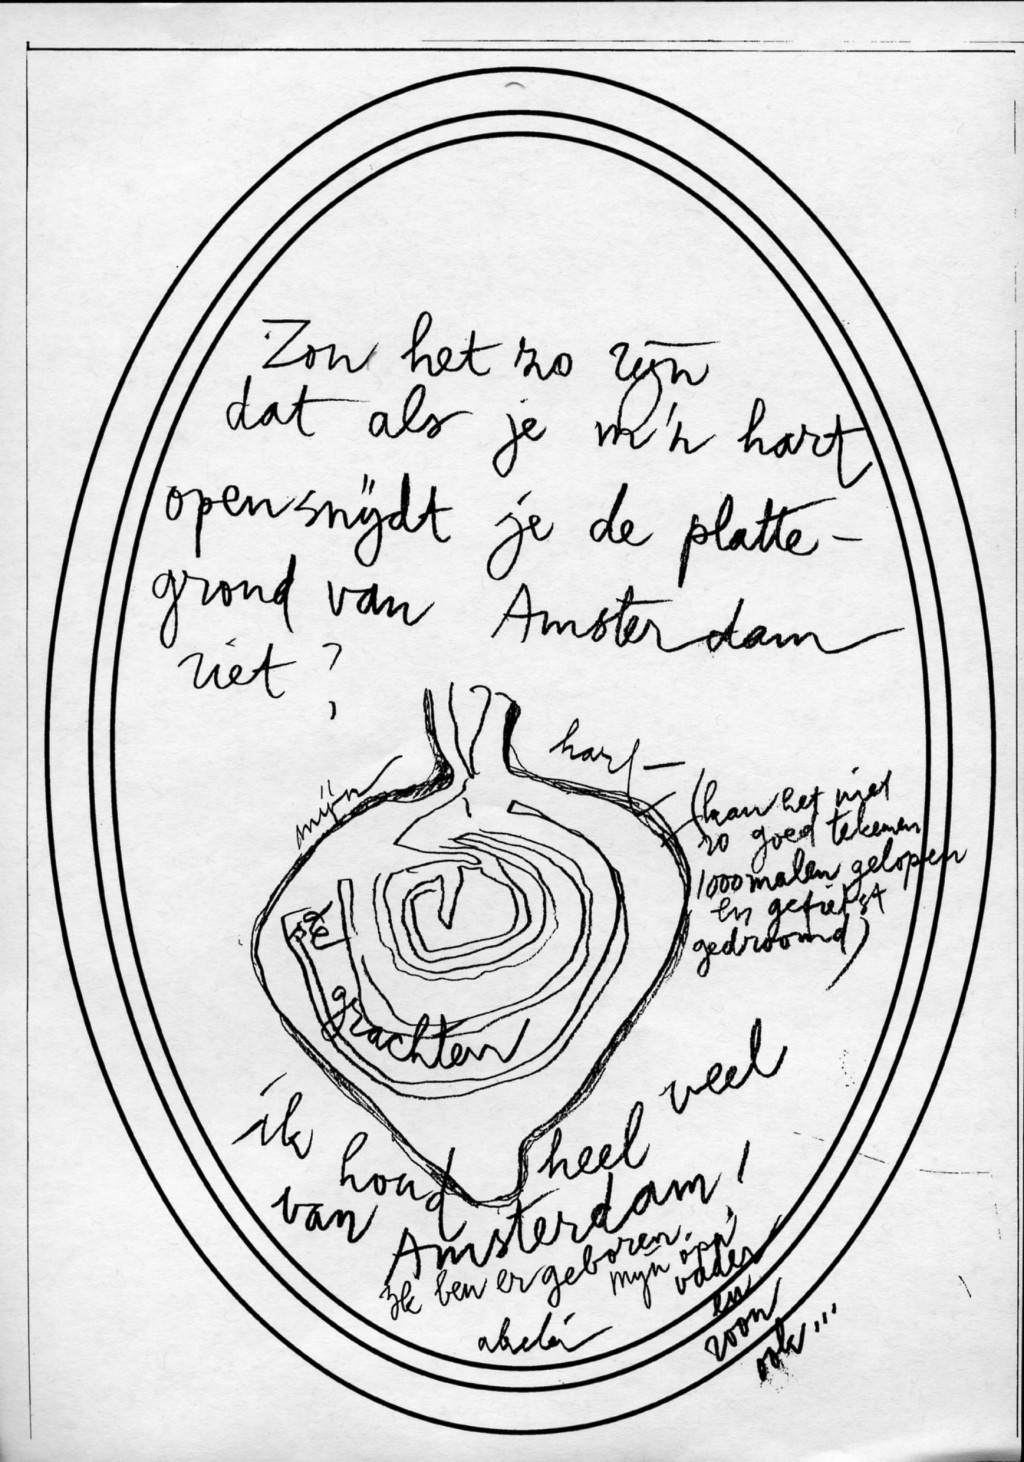 Zou het zo zijn
dat als je m'n hart
opensnijdt je de platte-
grond van Amsterdam
ziet?
mijn
hart
(kan het niet
zo goed tekenen
1000 malen gelopen
en gefietst
gedroomd)
grachten
ik houd heel veel
van Amsterdam!
Ik ben er geboren.
mijn opa,
vader
en
zoon
ook...